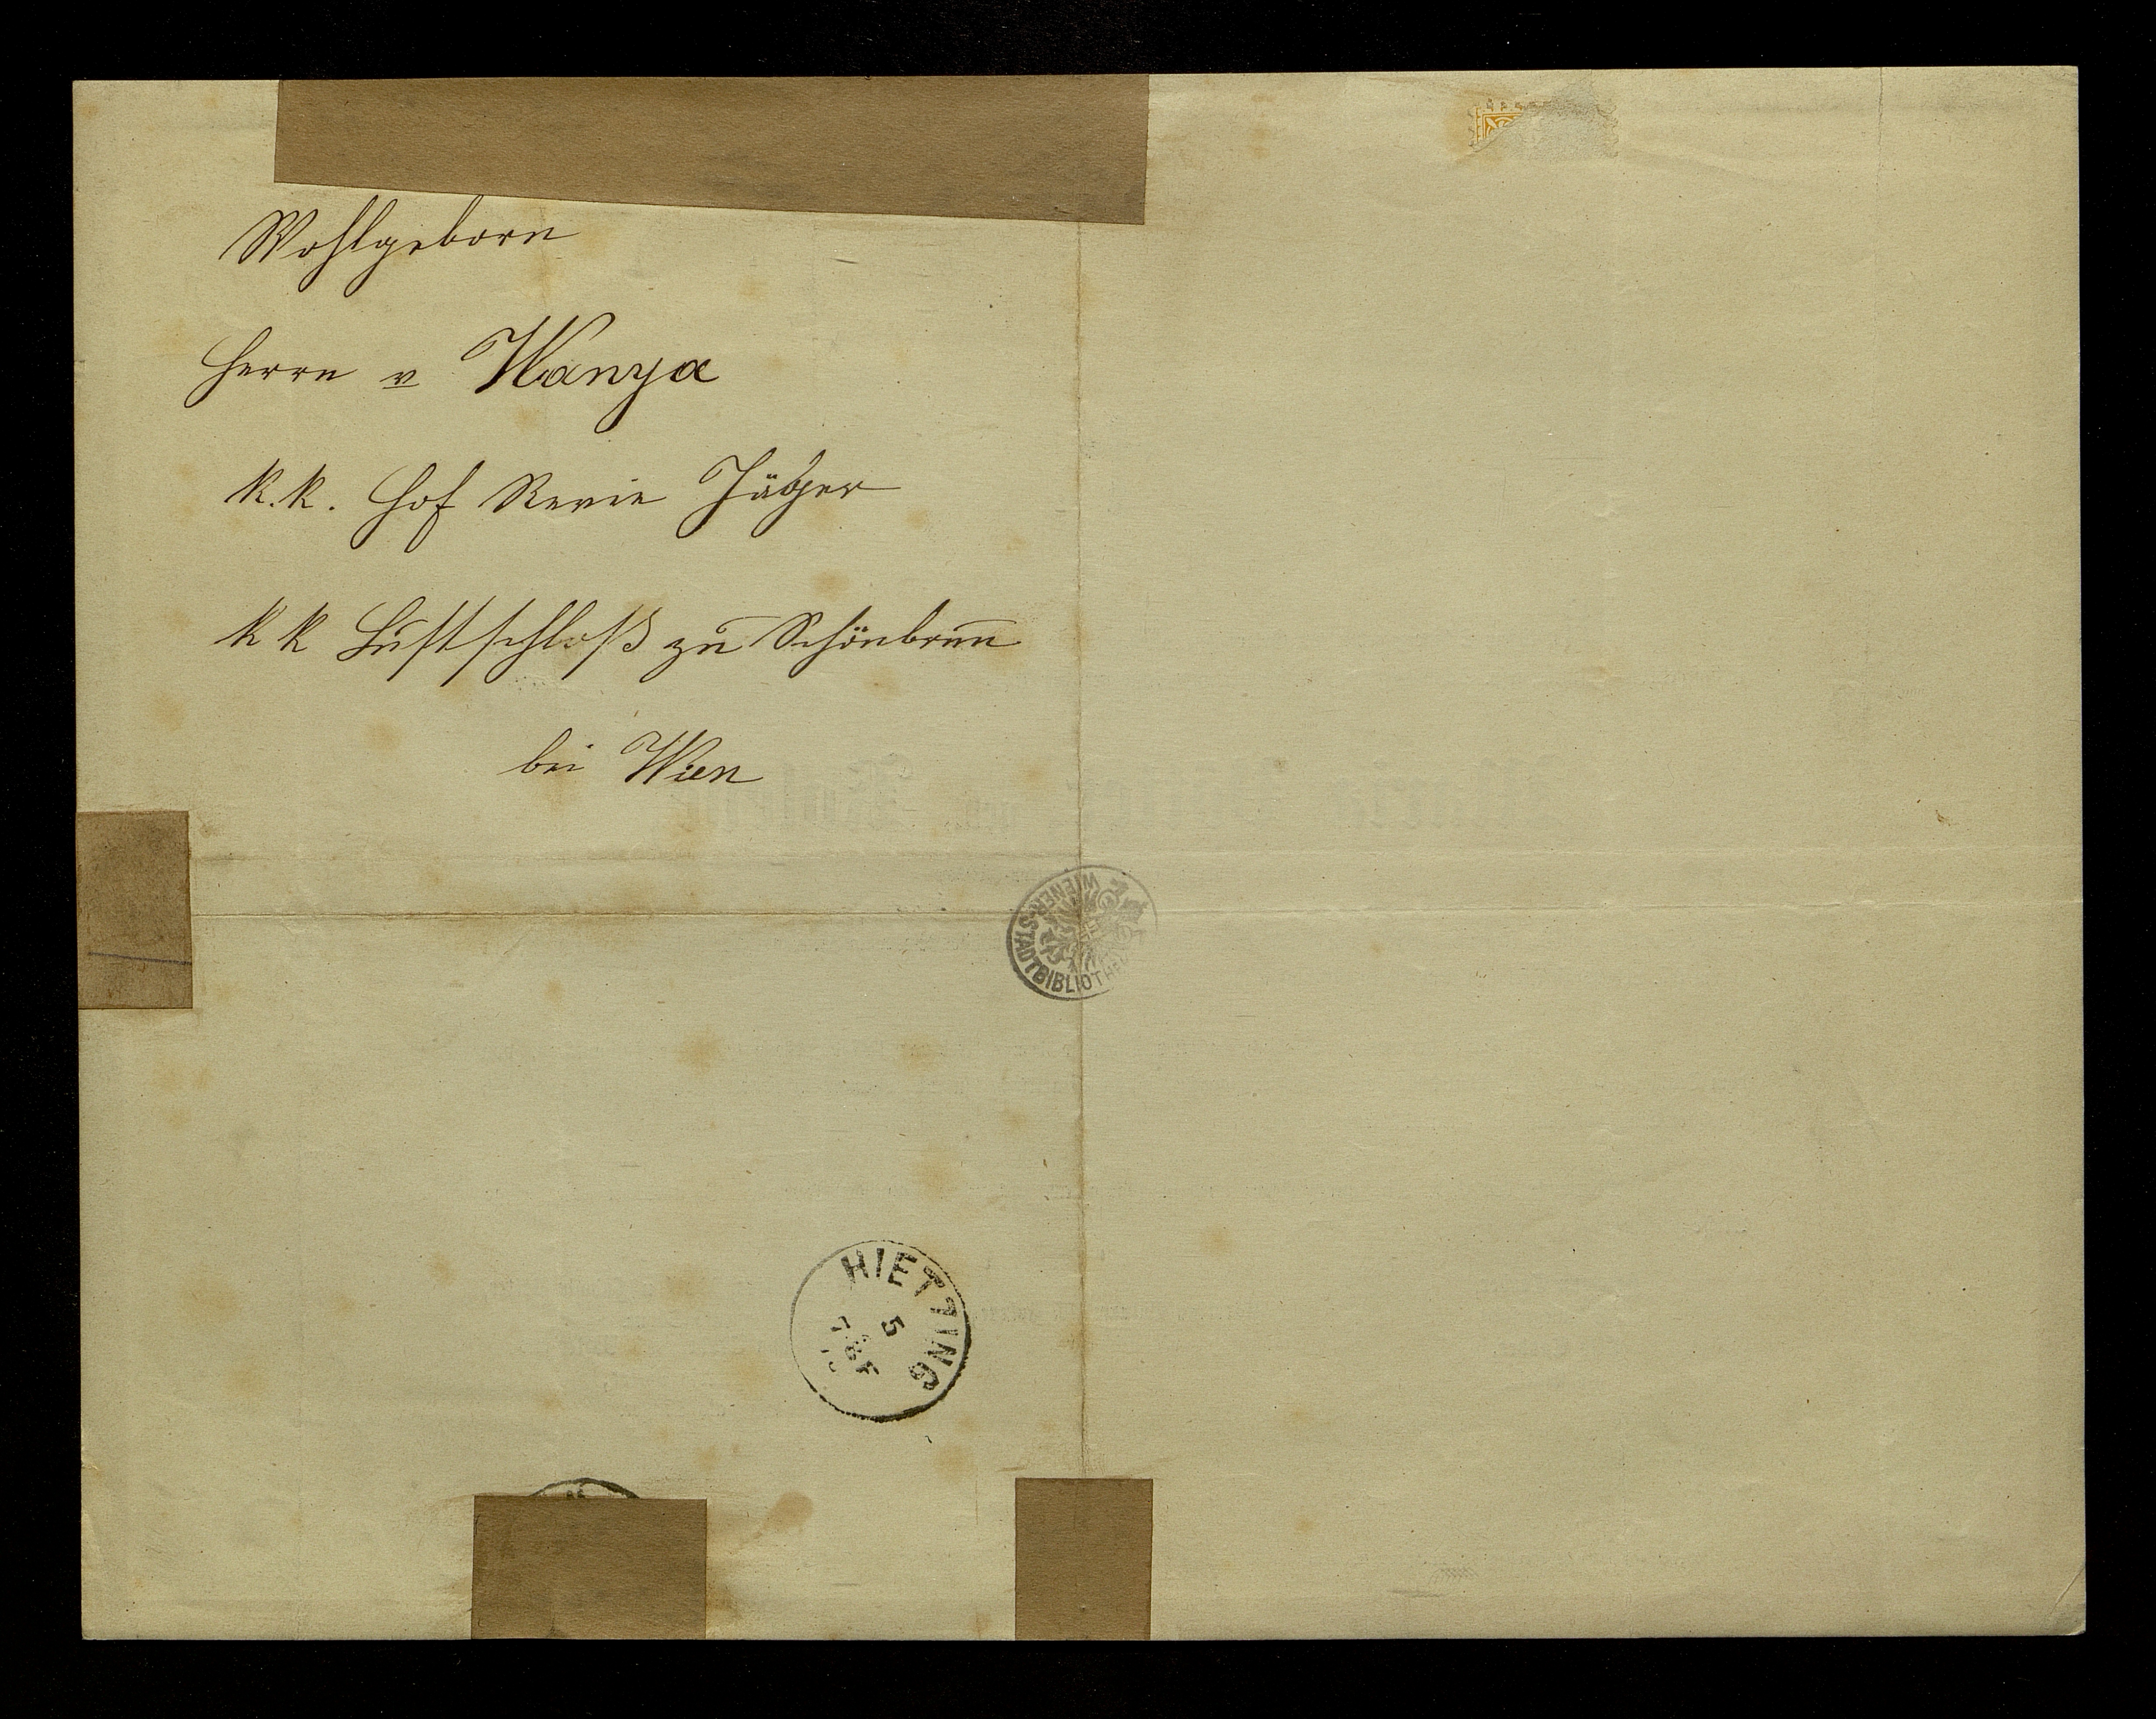 Wohlgeborn
Herrn v Wanya
k.k. Hof Revie Jäger
k k Lustschloß zu Schönbrun̄
bei Wien
WIENER-STADTBIBLIOTHEK
HIETZING
5